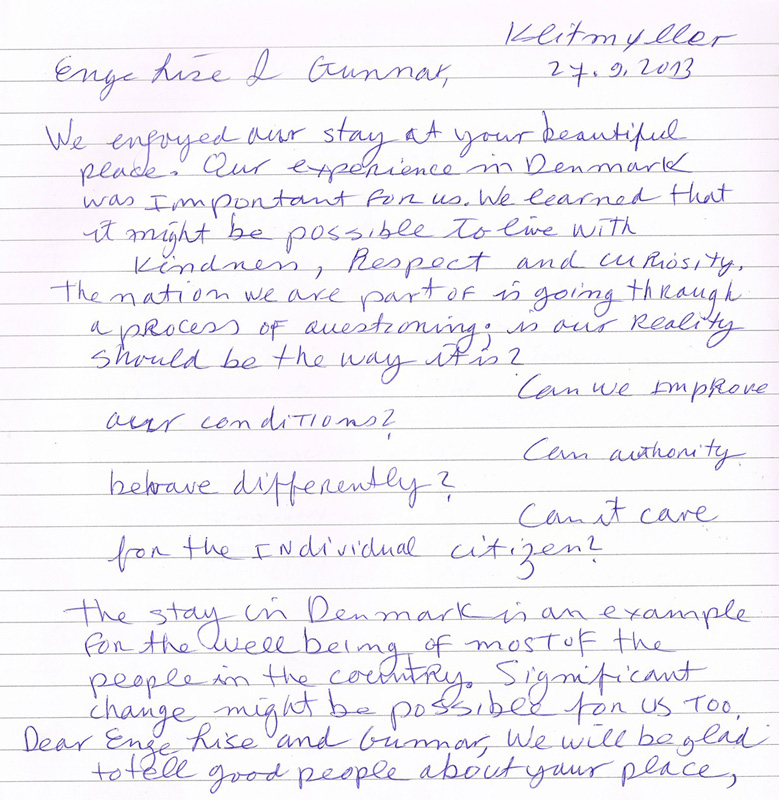 Klitmyller
Enge Lise & Gunnar,
27.9.2013
We engoyed our stay at your beautiful
place. Our experience in Denmark
was Important for us. We learned that
it might be possible to live with
kindness, Respect and curiosity.
The nation we are part of is going through
a process of questioning; is our Reality
should be the way it is?
Can we improve
our conditions?
Can authority
behave differently?
Can it care
for the Individual citizen?
The stay in Denmark is an example
for the well being of most of the
people in the country. Significant
change might be possible for us too.
Dear Enge Lise and Gunnar, We will be glad
to tell good people about your place,